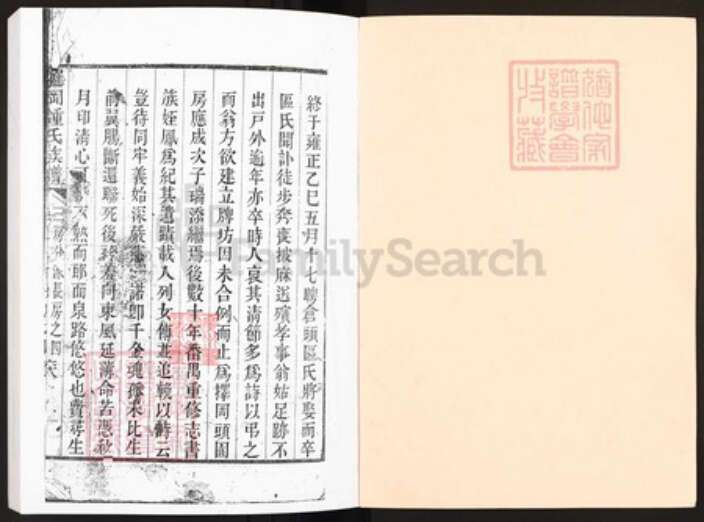 終于雍正乙巳五月十七聘倉頭區氏將娶而卒
區氏聞訃徒步奔喪披麻送殯孝事翁姑足跡不
出戸外逾年亦卒時人哀其清節多爲詩以弔之
而翁方欲建立牌坊因未合例而止爲擇岡頭園
房應成次子瑞添繼焉後數十年番禺重修志書
族姪鳳爲紀其遺蹟載入列女傳並追輓以詩云
豈待同牢義始深 諾卽千金魂 比生
前翼鴈斷還聯死後 向東風延薄命若憑秋
月印清心 煞而郎而泉路悠悠也費尋生
岡鍾氏族譜
房之四
FamilySearch
譜學會
收藏